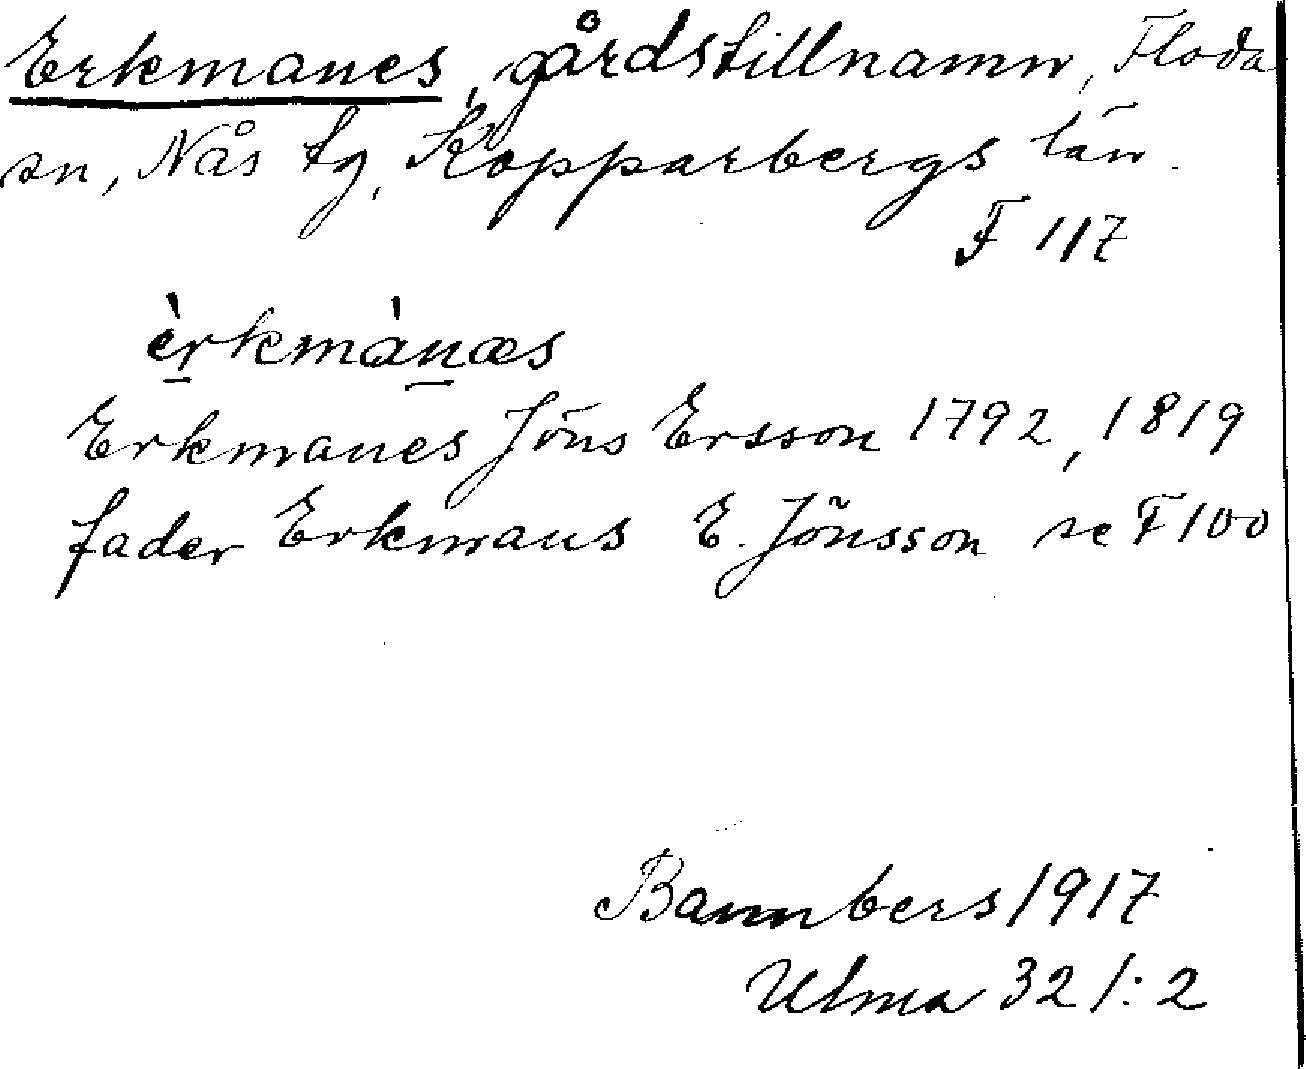 Erkmanes, gårdstillnamn, Floda
sn, Nås tg, Kopparbergs län.
F 117
èrkmànæs
Erkmanes Jöns Ersson 1792, 1819
fader Erkmans E. Jönsson se F 100
Bannbers 1917
Ulma 321:2